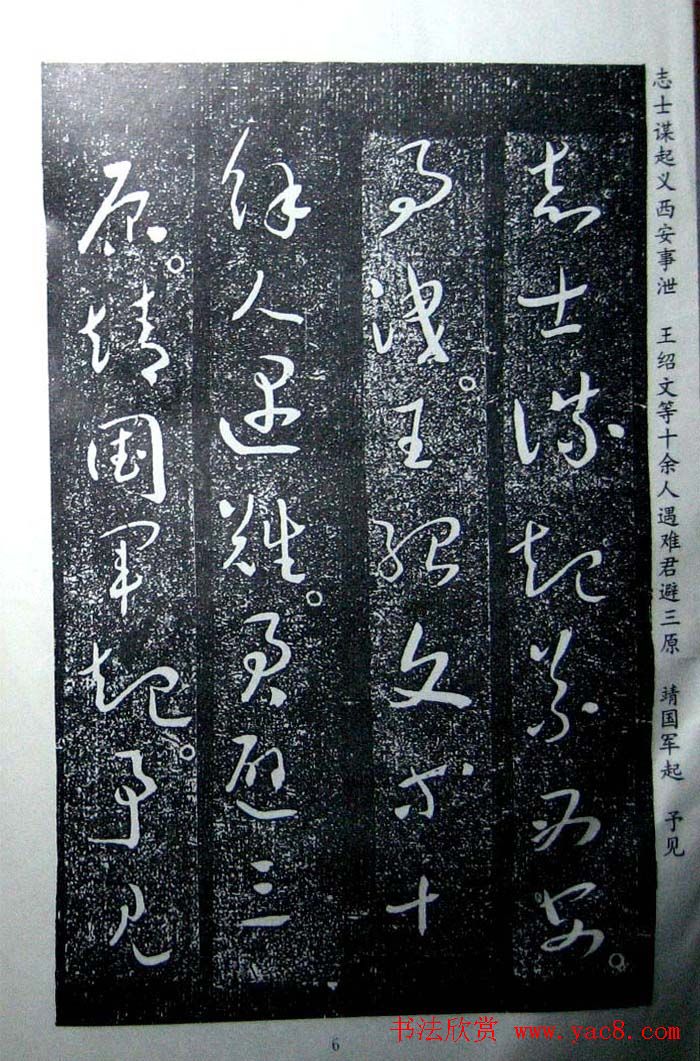 志士谋起义西安。
事泄。王绍文等十
余人遇难。君避三
原。靖国军起。予见
志士谋起义西安事泄　王绍文等十余人遇难君避三原　靖国军起　予见
6
书法欣赏 www.yac8.com